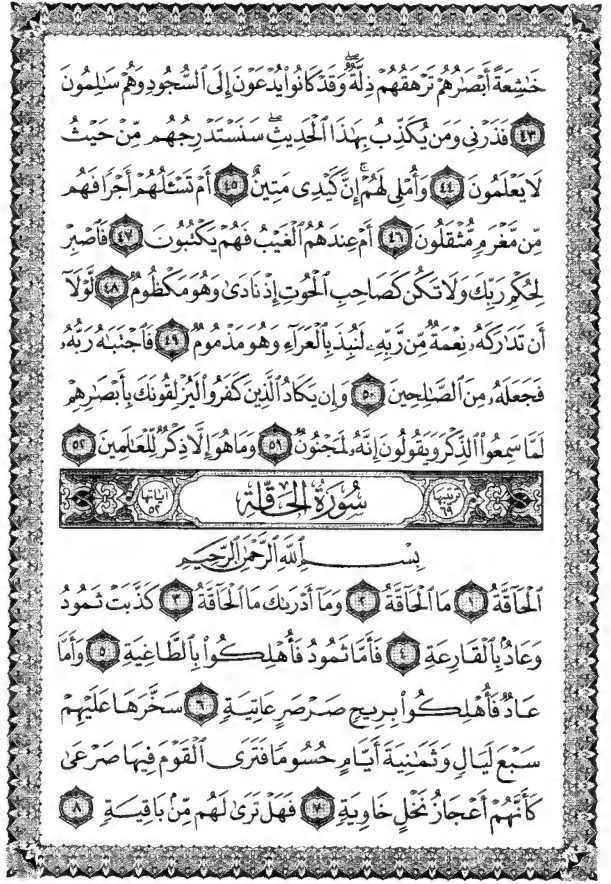 خَٰشِعَةً أَبْصَٰرُهُمْ تَرْهَقُهُمْ ذِلَّةٌۖ وَقَدْ كَانُوا۟ يُدْعَوْنَ إِلَى ٱلسُّجُودِ وَهُمْ سَٰلِمُونَ
﴿٤٣﴾ فَذَرْنِى وَمَن يُكَذِّبُ بِهَٰذَا ٱلْحَدِيثِۖ سَنَسْتَدْرِجُهُم مِّنْ حَيْثُ
لَا يَعْلَمُونَ ﴿٤٤﴾ وَأُمْلِى لَهُمْۚ إِنَّ كَيْدِى مَتِينٌ ﴿٤٥﴾ أَمْ تَسْـَٔلُهُمْ أَجْرًا فَهُم
مِّن مَّغْرَمٍ مُّثْقَلُونَ ﴿٤٦﴾ أَمْ عِندَهُمُ ٱلْغَيْبُ فَهُمْ يَكْتُبُونَ ﴿٤٧﴾ فَٱصْبِرْ
لِحُكْمِ رَبِّكَ وَلَا تَكُن كَصَاحِبِ ٱلْحُوتِ إِذْ نَادَىٰ وَهُوَ مَكْظُومٌ ﴿٤٨﴾ لَّوْلَآ
أَن تَدَٰرَكَهُۥ نِعْمَةٌ مِّن رَّبِّهِۦ لَنُبِذَ بِٱلْعَرَآءِ وَهُوَ مَذْمُومٌ ﴿٤٩﴾ فَٱجْتَبَٰهُ رَبُّهُۥ
فَجَعَلَهُۥ مِنَ ٱلصَّٰلِحِينَ ﴿٥٠﴾ وَإِن يَكَادُ ٱلَّذِينَ كَفَرُوا۟ لَيُزْلِقُونَكَ بِأَبْصَٰرِهِمْ
لَمَّا سَمِعُوا۟ ٱلذِّكْرَ وَيَقُولُونَ إِنَّهُۥ لَمَجْنُونٌ ﴿٥١﴾ وَمَا هُوَ إِلَّا ذِكْرٌ لِّلْعَٰلَمِينَ ﴿٥٢﴾
ترتيبها ٦٩ سُورَةُ الْحَاقَّةِ آياتها ٥٢
بِسْمِ ٱللَّهِ ٱلرَّحْمَٰنِ ٱلرَّحِيمِ
ٱلْحَآقَّةُ ﴿١﴾ مَا ٱلْحَآقَّةُ ﴿٢﴾ وَمَآ أَدْرَىٰكَ مَا ٱلْحَآقَّةُ ﴿٣﴾ كَذَّبَتْ ثَمُودُ
وَعَادٌۢ بِٱلْقَارِعَةِ ﴿٤﴾ فَأَمَّا ثَمُودُ فَأُهْلِكُوا۟ بِٱلطَّاغِيَةِ ﴿٥﴾ وَأَمَّا
عَادٌ فَأُهْلِكُوا۟ بِرِيحٍ صَرْصَرٍ عَاتِيَةٍ ﴿٦﴾ سَخَّرَهَا عَلَيْهِمْ
سَبْعَ لَيَالٍ وَثَمَٰنِيَةَ أَيَّامٍ حُسُومًا فَتَرَى ٱلْقَوْمَ فِيهَا صَرْعَىٰ
كَأَنَّهُمْ أَعْجَازُ نَخْلٍ خَاوِيَةٍ ﴿٧﴾ فَهَلْ تَرَىٰ لَهُم مِّنۢ بَاقِيَةٍ ﴿٨﴾